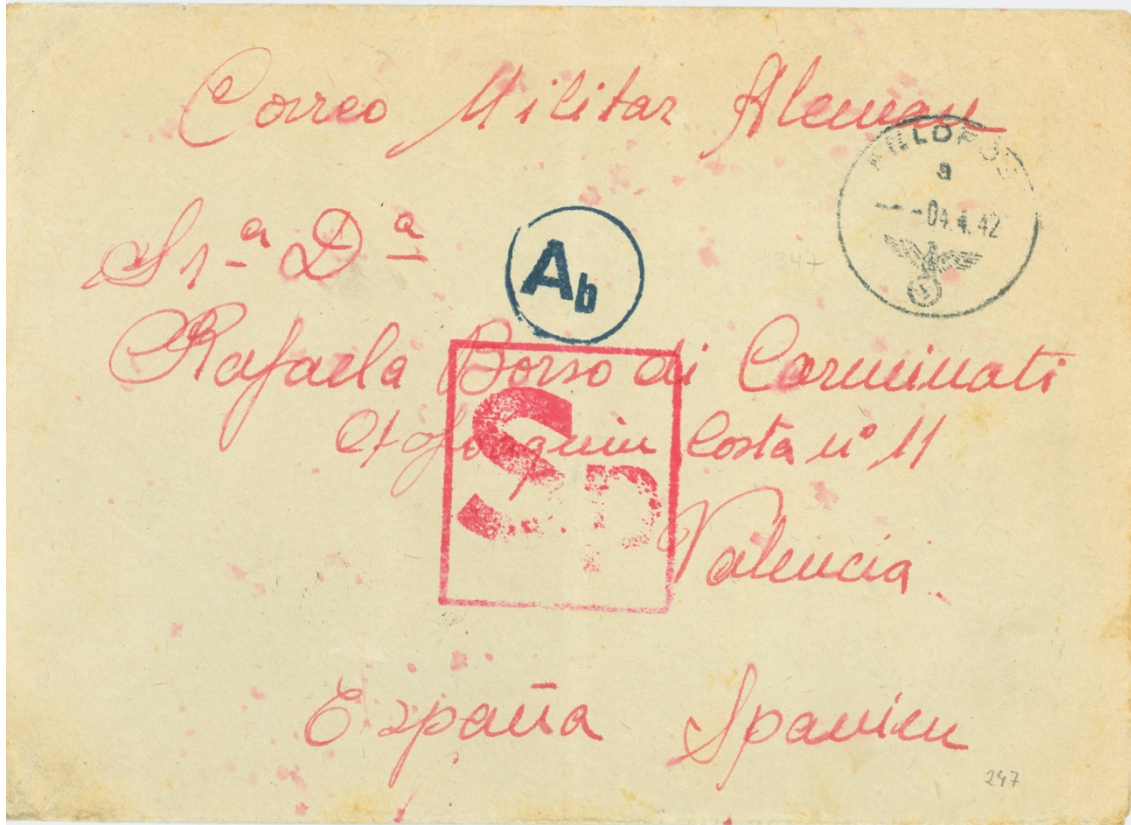 Correo Militar Aleman
FELDPOST
a
-04.4.42
Srª Dª
Ab
347
Rafaela Borso di Carminati
Ct Joaquin Costa nº 11
Sp
Valencia
España Spanien
247